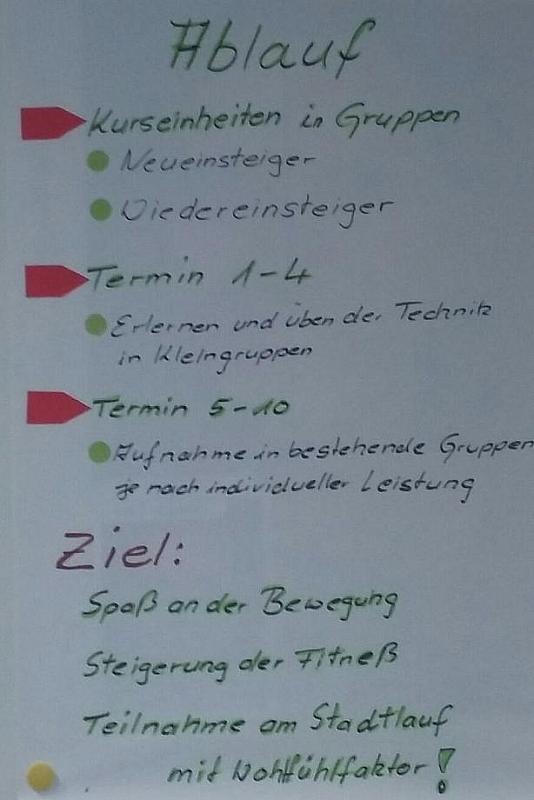 Ablauf
Kurseinheiten in Gruppen
Neueinsteiger
Wiedereinsteiger
Termin 1-4
Erlernen und üben der Technik
in Kleingruppen
Termin 5-10
Aufnahme in bestehende Gruppen
je nach individueller Leistung
Ziel:
Spaß an der Bewegung
Steigerung der Fitneß
Teilnahme am Stadtlauf
mit Wohlfühlfaktor!